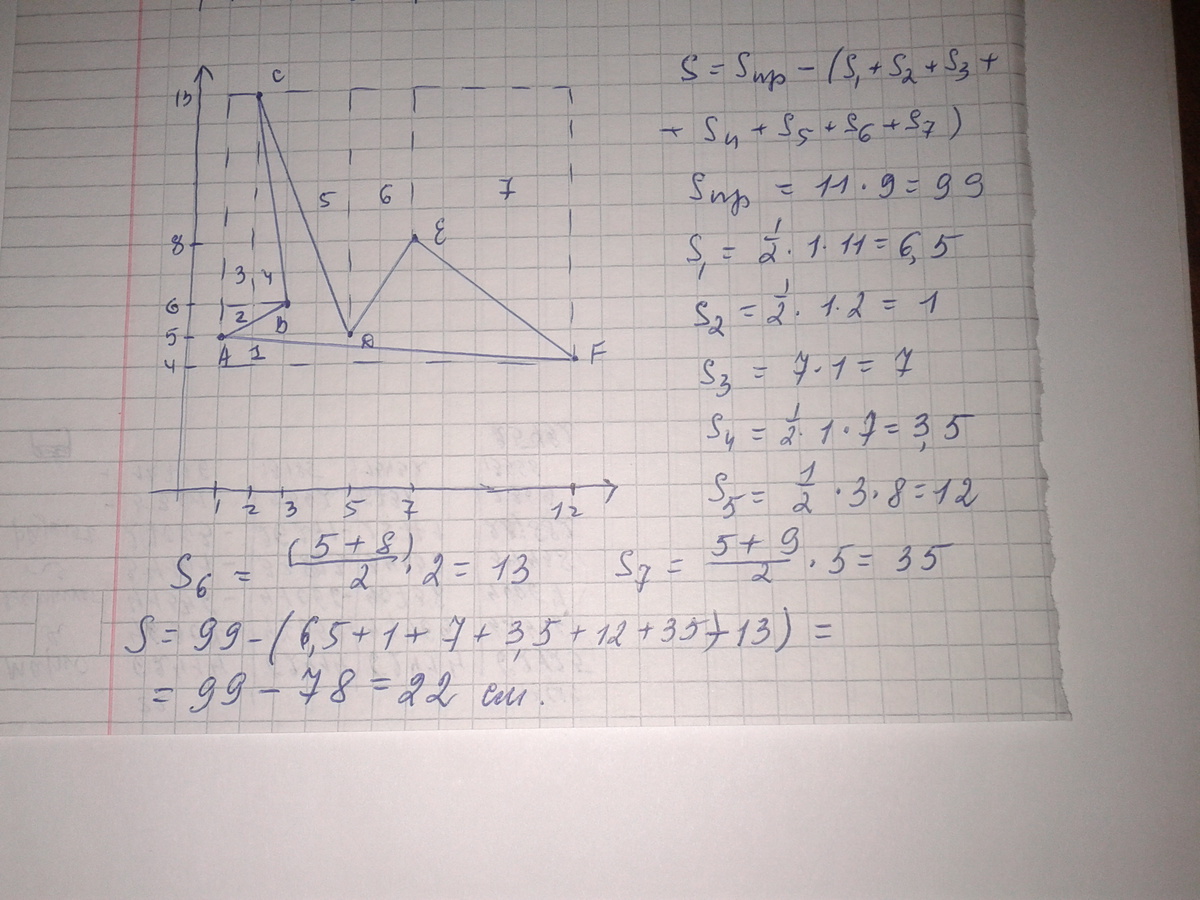 C
13
5
6
7
E
8
3
4
6
2
B
5
A
1
D
F
4
1
2
3
5
7
12
S = Sпр - (S₁ + S₂ + S₃ +
+ S₄ + S₅ + S₆ + S₇)
Sпр = 11 · 9 = 99
S₁ = 1/2 · 1 · 11 = 6,5
S₂ = 1/2 · 1 · 2 = 1
S₃ = 7 · 1 = 7
S₄ = 1/2 · 1 · 7 = 3,5
S₅ = 1/2 · 3 · 8 = 12
S₆ = (5 + 8)/2 · 2 = 13
S₇ = 5 + 9/2 · 5 = 35
S = 99 - (6,5 + 1 + 7 + 3,5 + 12 + 35 + 13) =
= 99 - 78 = 22 см.